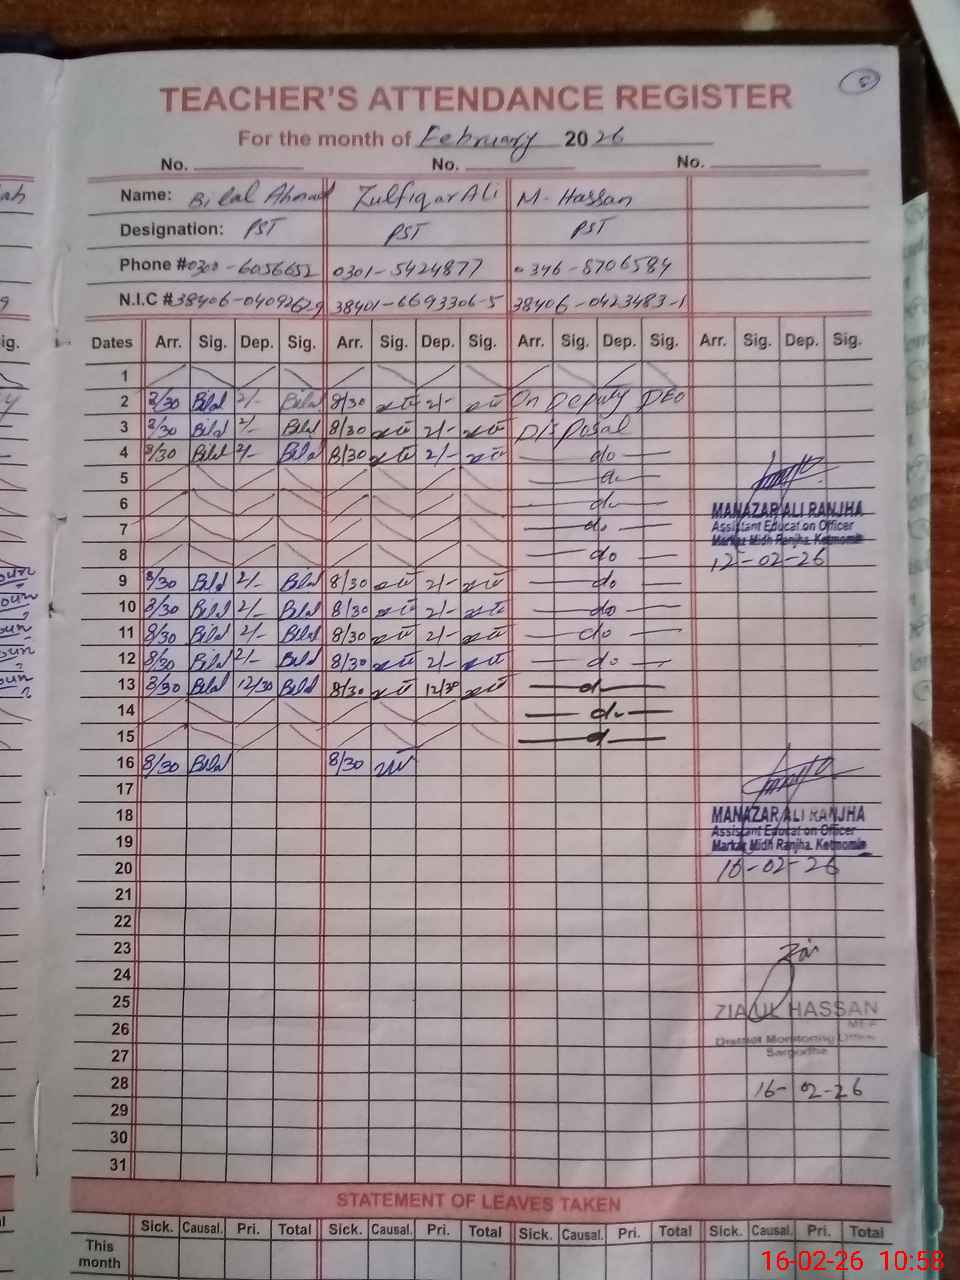 8
TEACHER'S ATTENDANCE REGISTER
For the month of February 2026
No. No. No.
Name: Bilal Ahmad Zulfiqar Ali M. Hassan
Designation: PST PST PST
Phone #0300-6056652 0301-5424877 0346-8706584
N.I.C #38406-0409262-9 38401-6693306-5 38406-0423483-1
Dates Arr. Sig. Dep. Sig. Arr. Sig. Dep. Sig. Arr. Sig. Dep. Sig. Arr. Sig. Dep. Sig.
1
2 8/30 Bilal 2/- Bilal 8/30 2/- On Deputy DEO
3 8/30 Bilal 2/- Bilal 8/30 2/- Disposal
4 8/30 Bilal 2/- Bilal 8/30 2/- do
5 do
6 do
MANAZAR ALI RANJHA
7 do
Assistant Education Officer
Markaz Midh Ranjha, Kotmomin
8 do
12-02-26
9 8/30 Bilal 2/- Bilal 8/30 2/- do
10 8/30 Bilal 2/- Bilal 8/30 2/- do
11 8/30 Bilal 2/- Bilal 8/30 2/- do
12 8/30 Bilal 2/- Bilal 8/30 2/- do
13 8/30 Bilal 12/30 Bilal 8/30 12/30 do
14 do
15 do
16 8/30 Bilal 8/30
17
18
MANAZAR ALI RANJHA
Assistant Education Officer
19
Markaz Midh Ranjha, Kotmomin
20
16-02-26
21
22
23
24
25
ZIA UL HASSAN
26
District Monitoring Officer
Sargodha
27
28
16-02-26
29
30
31
STATEMENT OF LEAVES TAKEN
Sick. Causal. Pri. Total Sick. Causal. Pri. Total Sick. Causal. Pri. Total Sick. Causal. Pri. Total
This month
16-02-26 10:58